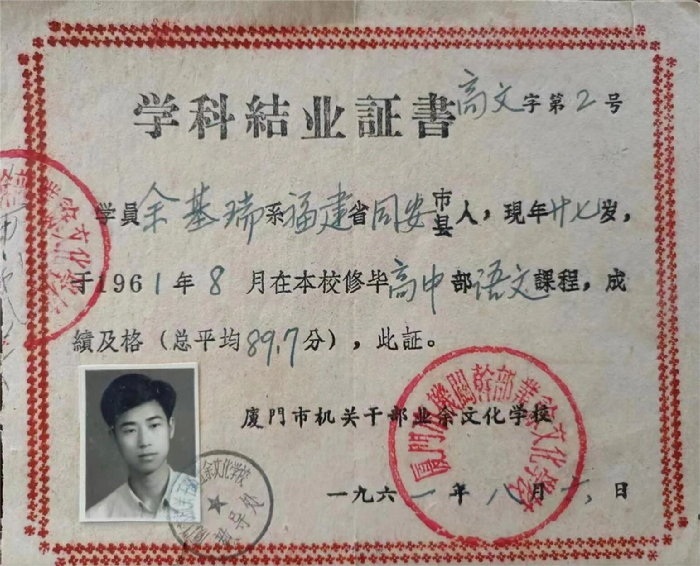 学科结业証書 高文字第2号
学員余基瑞系福建省同安市县人，現年廿七岁，
于1961年8月在本校修毕高中部语文課程，成
績及格（总平均89.7分），此証。
廈門市机关干部业余文化学校
一九六一年八月 日
廈門市機關幹部業餘文化學校
业余文化学校